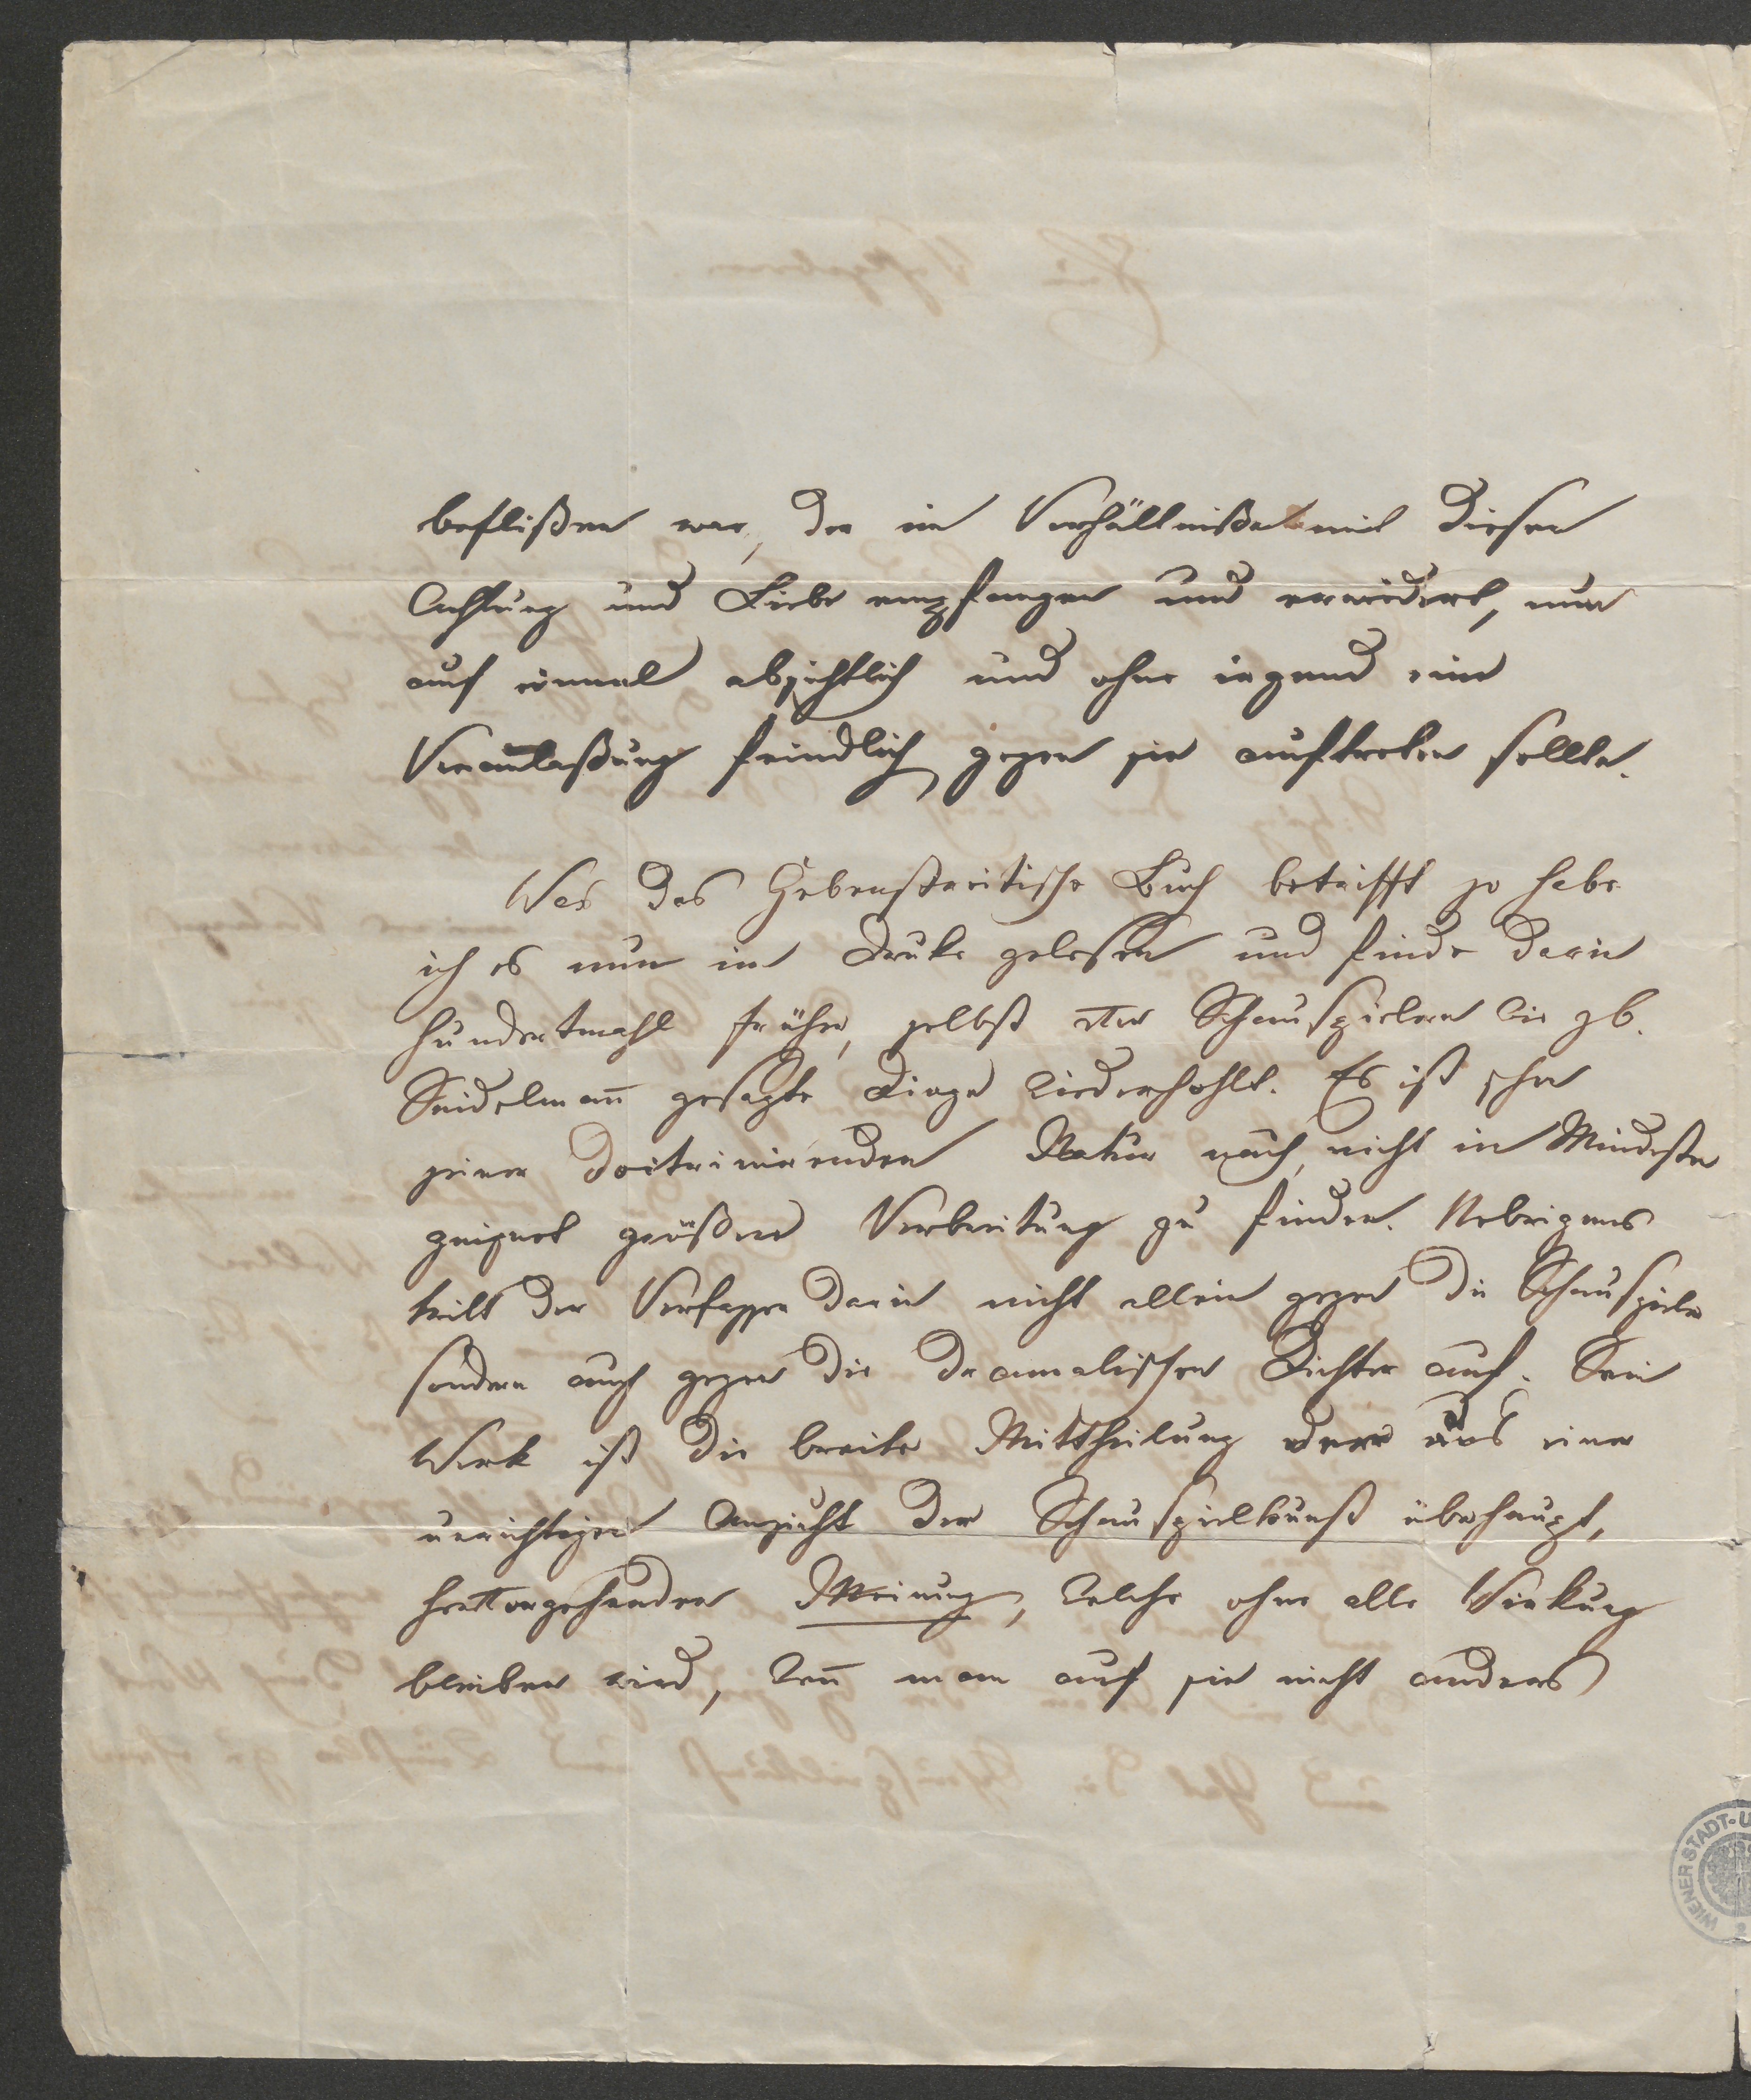 beflißen war, der im Verhältniße mit diesen
Achtung und Liebe empfangen und erwiedert, nun
auf einmal absichtlich und ohne irgend eine
Veranlaßung feindlich gegen sie auftreten sollte.
Was das Hebenstreitische Buch betrifft so habe
ich es nun im Druke gelesen und finde darin
hundertmahl früher, selbst von Schauspielern wie zb.
Seidelmañ gesagte Dinge wiederhohlt. Es ist schon
seiner doctrinirenden Natur nach, nicht im Mindesten
geeignet größere Verbreitung zu finden. Uebrigens
tritt der Verfasser darin nicht allein gegen die Schauspieler
sondern auch gegen die dramatischen Dichter auf. Sein
Werk ist die breite Mittheilung der aus einer
unrichtigen Ansicht der Schauspielkunst überhaupt,
hervorgehenden Meinung, welche ohne alle Wirkung
bleiben wird, weñ man auf sie nicht anders
WIENER STADT-U